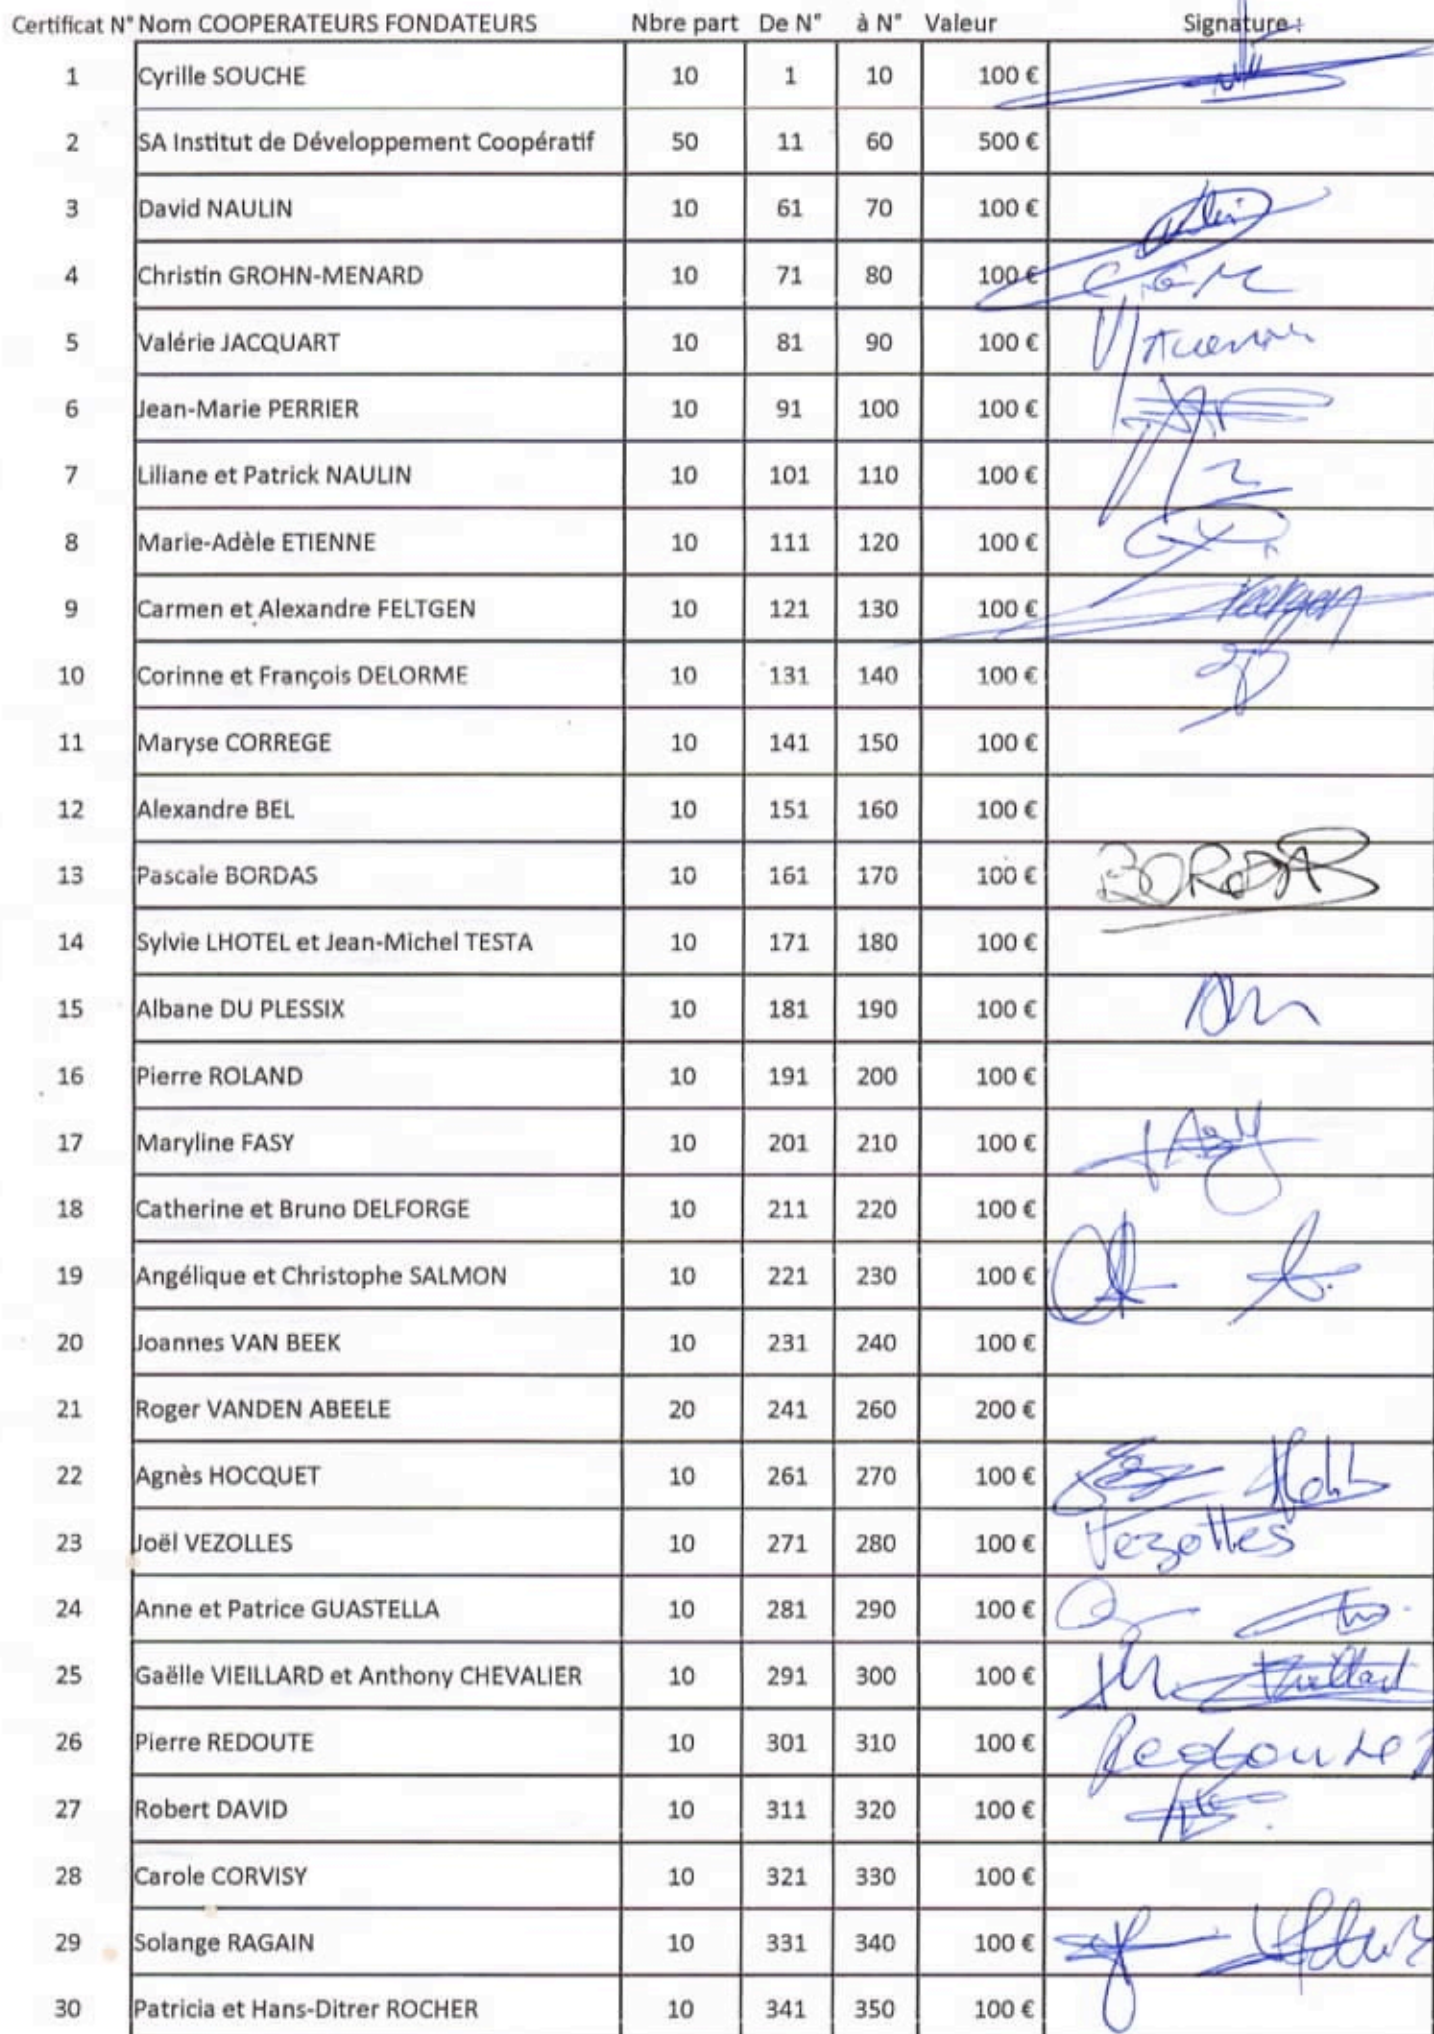 Certificat N° Nom COOPERATEURS FONDATEURS Nbre part De N° à N° Valeur Signature :
1 Cyrille SOUCHE 10 1 10 100 €
2 SA Institut de Développement Coopératif 50 11 60 500 €
3 David NAULIN 10 61 70 100 €
4 Christin GROHN-MENARD 10 71 80 100 €
5 Valérie JACQUART 10 81 90 100 €
6 Jean-Marie PERRIER 10 91 100 100 €
7 Liliane et Patrick NAULIN 10 101 110 100 €
8 Marie-Adèle ETIENNE 10 111 120 100 €
9 Carmen et Alexandre FELTGEN 10 121 130 100 €
10 Corinne et François DELORME 10 131 140 100 €
11 Maryse CORREGE 10 141 150 100 €
12 Alexandre BEL 10 151 160 100 €
13 Pascale BORDAS 10 161 170 100 € BORDAS
14 Sylvie LHOTEL et Jean-Michel TESTA 10 171 180 100 €
15 Albane DU PLESSIX 10 181 190 100 €
16 Pierre ROLAND 10 191 200 100 €
17 Maryline FASY 10 201 210 100 €
18 Catherine et Bruno DELFORGE 10 211 220 100 €
19 Angélique et Christophe SALMON 10 221 230 100 €
20 Joannes VAN BEEK 10 231 240 100 €
21 Roger VANDEN ABEELE 20 241 260 200 €
22 Agnès HOCQUET 10 261 270 100 €
23 Joël VEZOLLES 10 271 280 100 € Vezolles
24 Anne et Patrice GUASTELLA 10 281 290 100 €
25 Gaëlle VIEILLARD et Anthony CHEVALIER 10 291 300 100 €
26 Pierre REDOUTE 10 301 310 100 €
27 Robert DAVID 10 311 320 100 €
28 Carole CORVISY 10 321 330 100 €
29 Solange RAGAIN 10 331 340 100 €
30 Patricia et Hans-Ditrer ROCHER 10 341 350 100 €